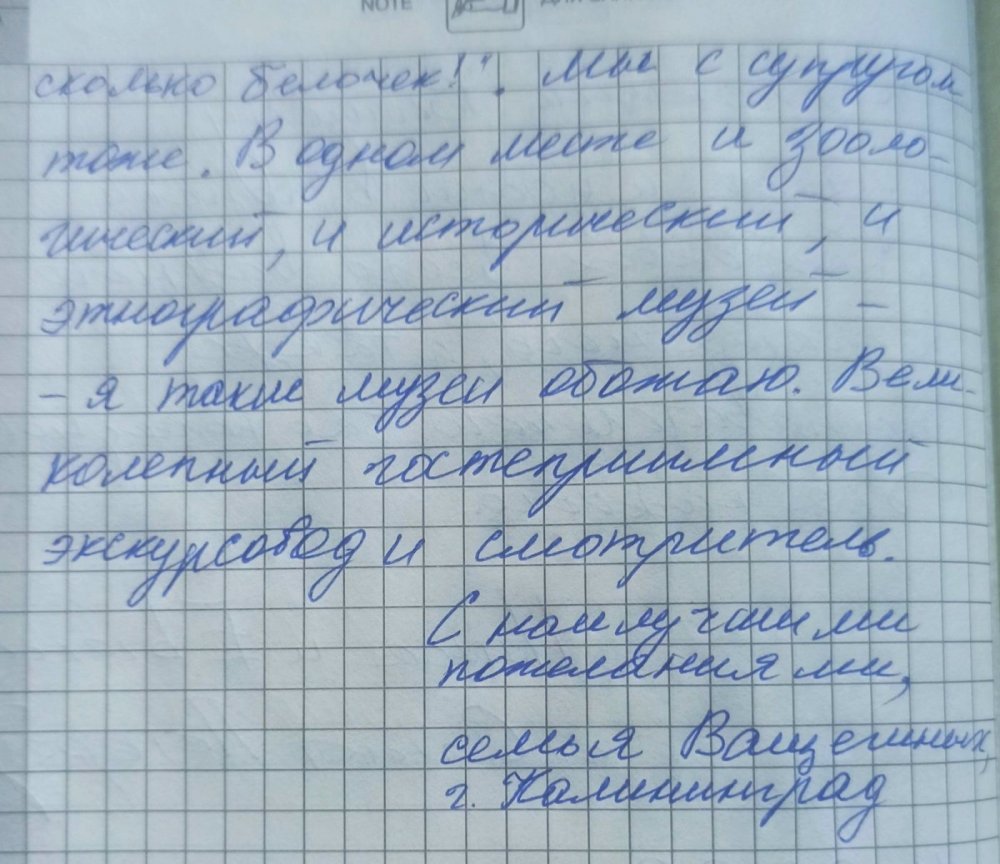 NOTE
сколько белочек!". Мы с супругом
тоже. В одном месте и зооло-
гический, и исторический, и
этнографический музей -
- я такие музеи обожаю. Вели-
колепный гостеприимный
экскурсовод и смотритель.
С наилучшими
пожеланиями,
семья
г. Калининград